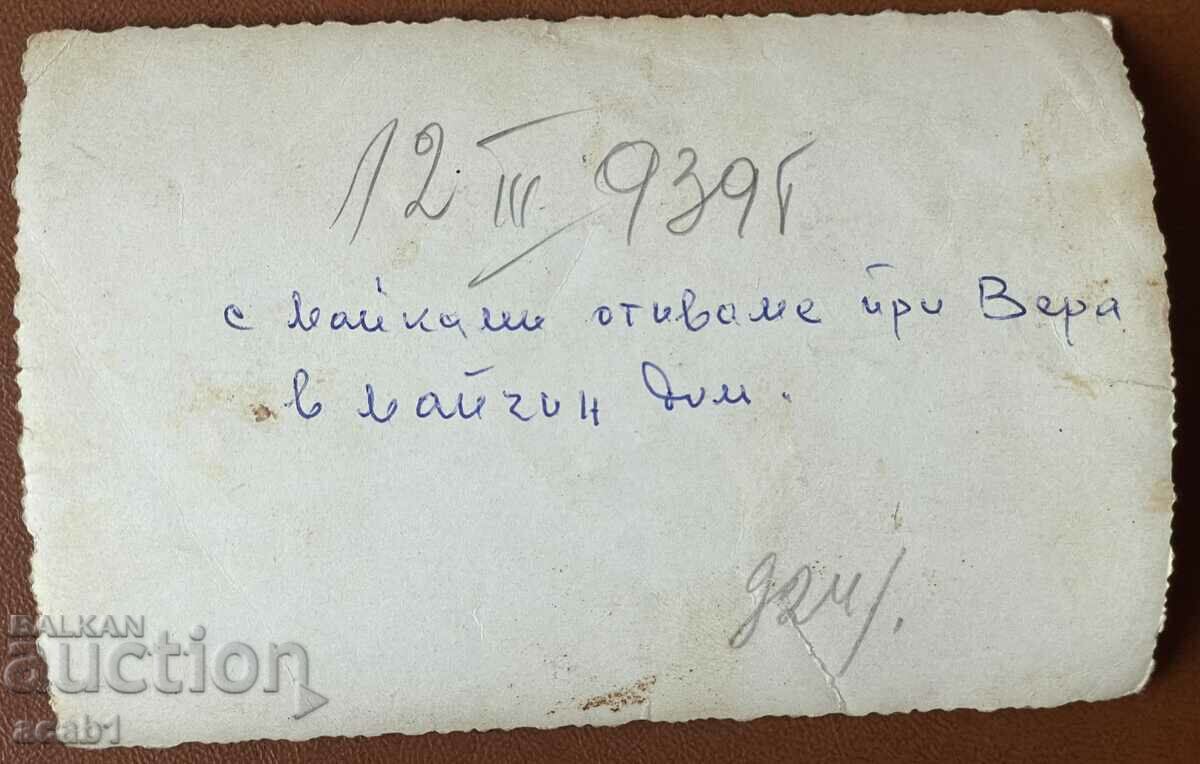 12 III 939 г
с майка ми отиваме при Вера
в майчин дом.
BALKAN
auction
acab1